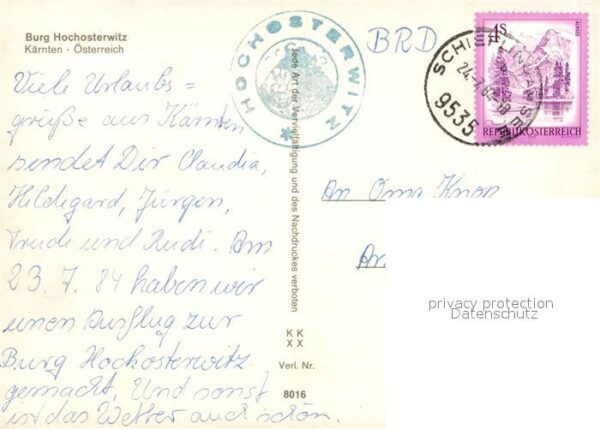 Burg Hochosterwitz
Kärnten - Österreich
Viele Urlaubs=
grüße aus Kärnten
sendet Dir Claudia,
Hildegard, Jürgen,
Trude und Rudi. Am
23.7.84 haben wir
einen Ausflug zur
Burg Hochosterwitz
gemacht. Und sonst
ist das Wetter auch schön.
HOCHOSTERWITZ
Jede Art der Vervielfältigung und des Nachdruckes verboten
KK
XX
Verl. Nr.
8016
BRD
9535
4S
ALMSEE
REPUBLIK ÖSTERREICH
An Oma Knop
privacy protection
Datenschutz